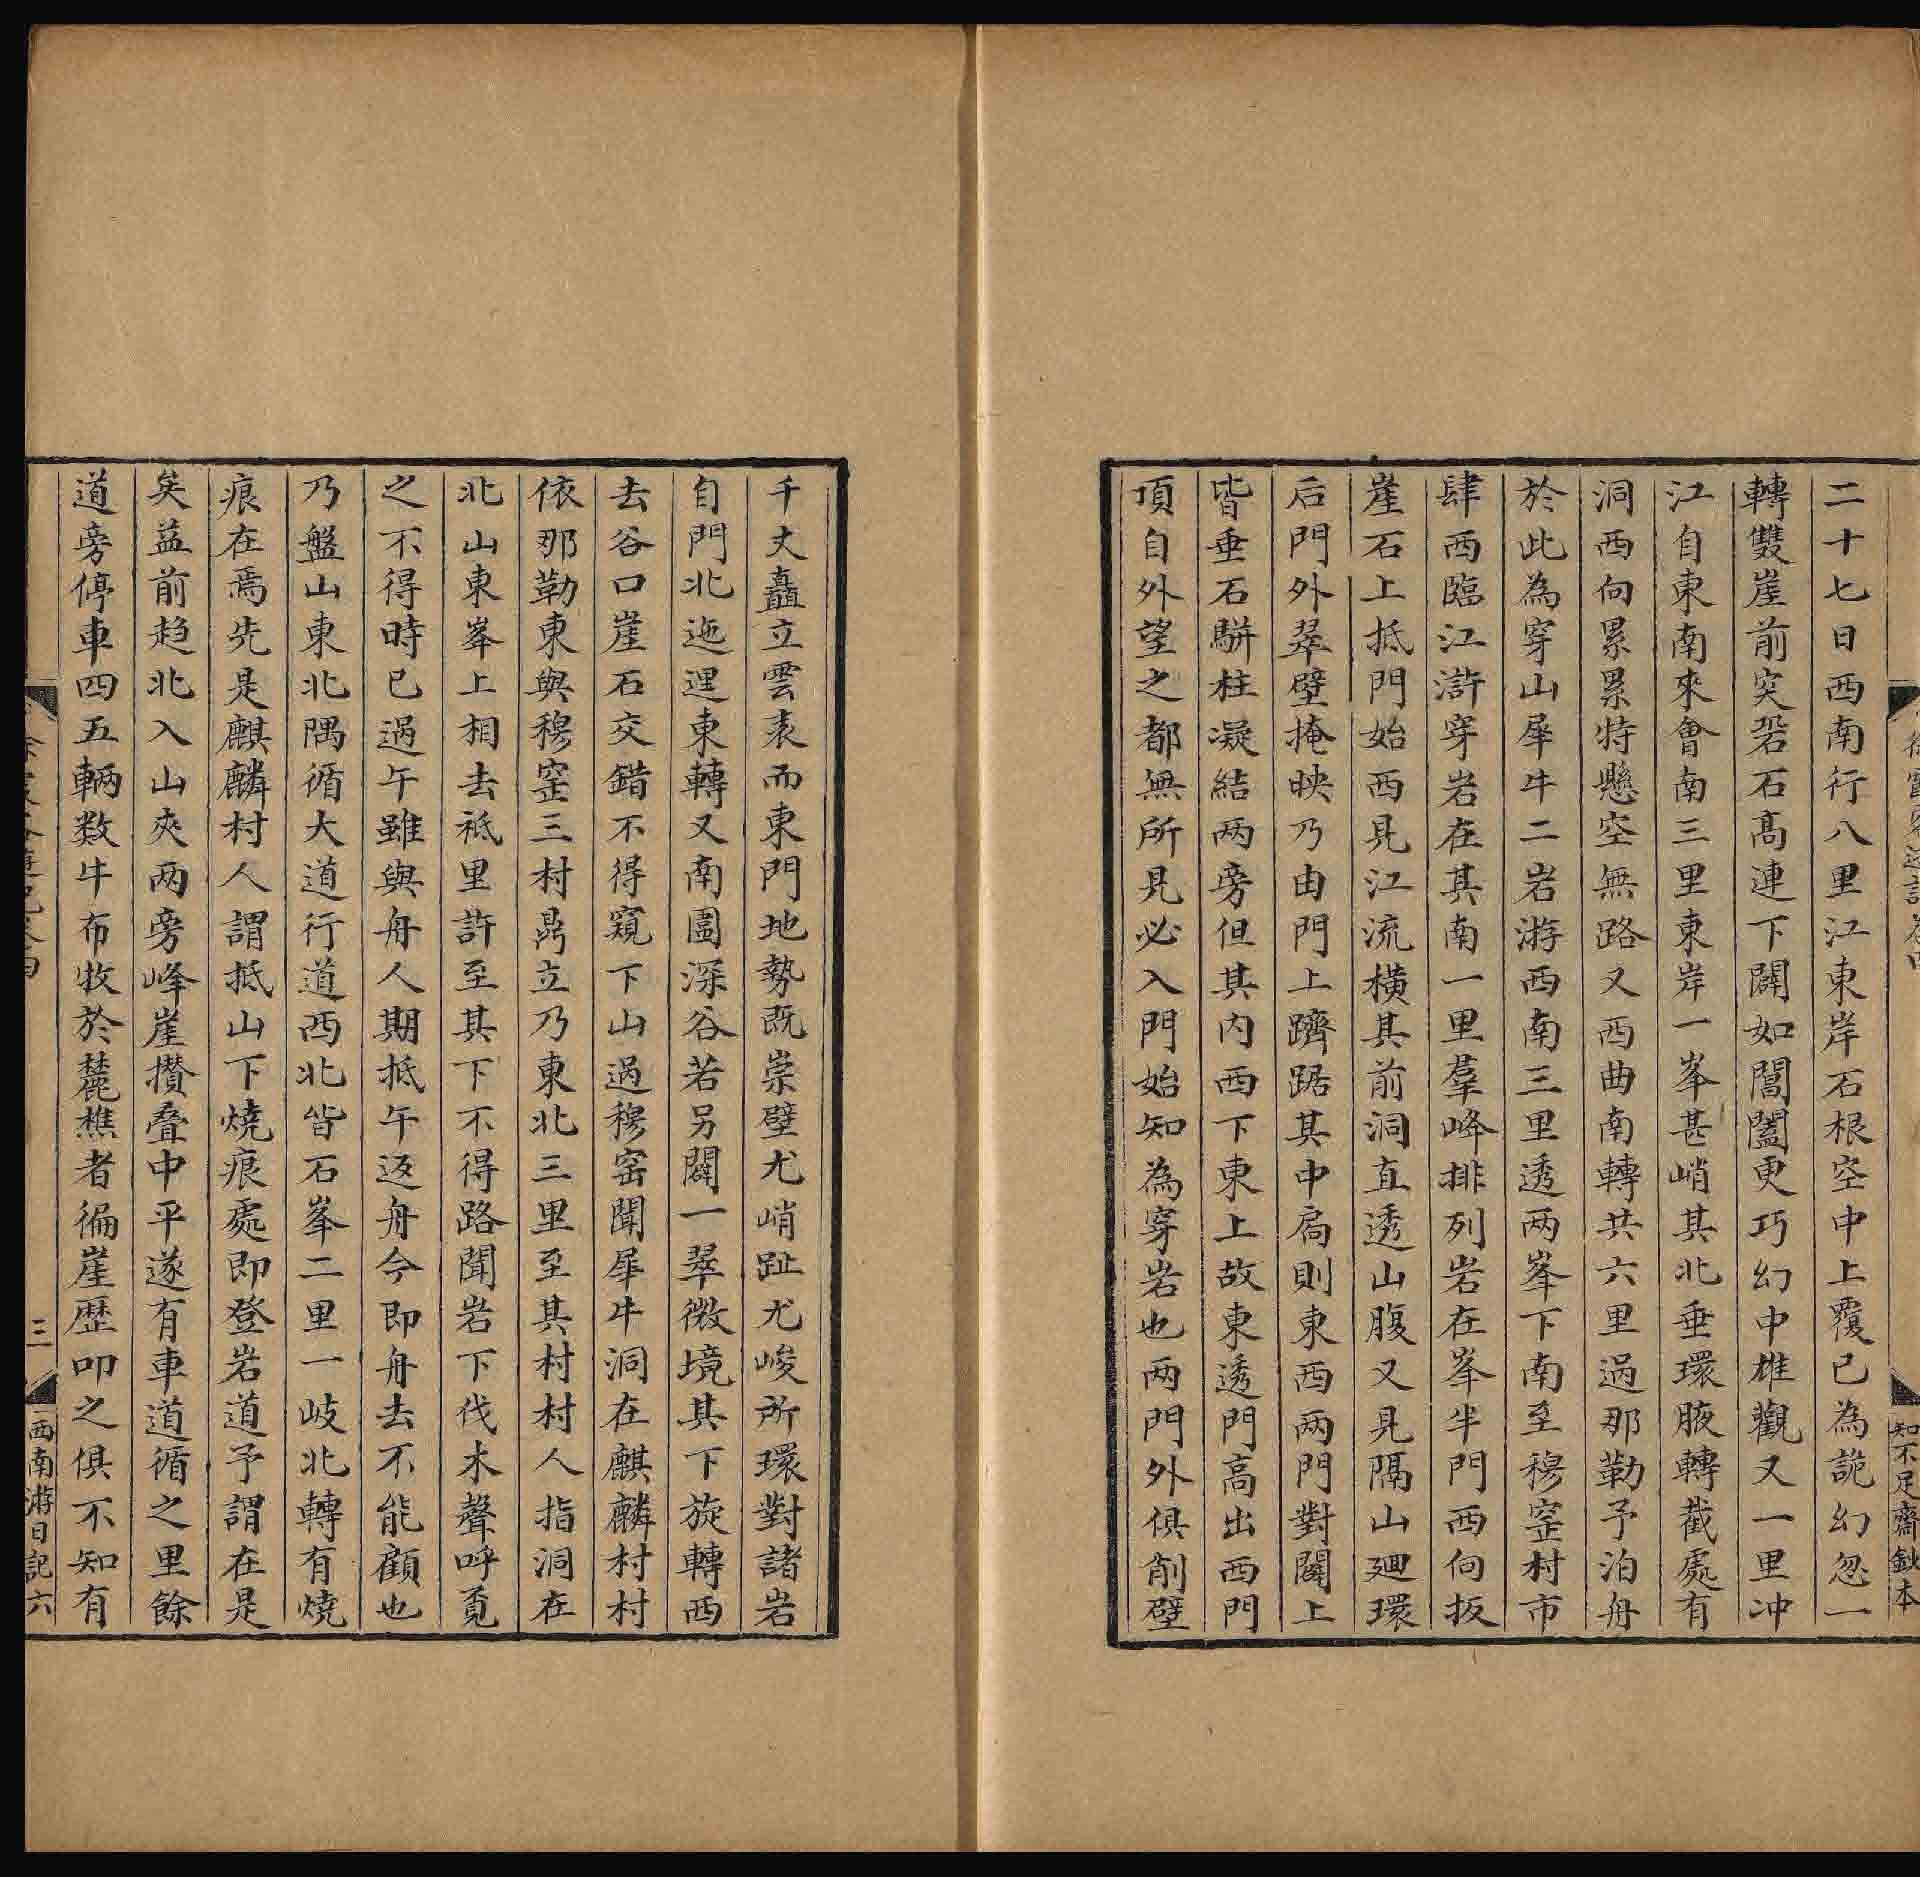 二十七日西南行八里江東岸石根空中上覆已為詭幻忽一
轉雙崖前突碞石高連下闢如閶闔更巧幻中雄觀又一里冲
江自東南來會南三里東岸一峯甚峭其北垂環腋轉截處有
洞西向累累特懸空無路又西曲南轉共六里過那勒予泊舟
於此為穿山犀牛二岩游西南三里透两峯下南至穆窑村市
肆西臨江滸穿岩在其南一里羣峰排列岩在峯半門西向扳
崖石上抵門始西見江流橫其前洞直透山腹又見隔山迴環
后門外翠壁掩映乃由門上躋踞其中扃則東西两門對闢上
皆垂石駢柱凝結两旁但其内西下東上故東透門高出西門
項自外望之都無所見必入門始知為穿岩也两門外俱削壁
知不足齋鈔本
千丈矗立雲表而東門地勢既崇壁尤峭趾尤峻所環對諸岩
自門北迤逕東轉又南圍深谷若另闢一翠微境其下旋轉西
去谷口崖石交錯不得窺下山過穆窑聞犀牛洞在麒麟村村
依那勒東與穆窑三村鼎立乃東北三里至其村村人指洞在
北山東峯上相去祗里許至其下不得路聞岩下伐木聲呼覔
之不得時已過午雖與舟人期抵午返舟今即舟去不能顧也
乃盤山東北隅循大道行道西北皆石峯二里一岐北轉有燒
痕在焉先是麒麟村人謂抵山下燒痕處即登岩道予謂在是
矣益前趋北入山夾两旁峰崖攢叠中平遂有車道循之里餘
道旁停車四五輛数牛布牧於麓樵者徧崖歷叩之俱不知有
三
西南游日記六